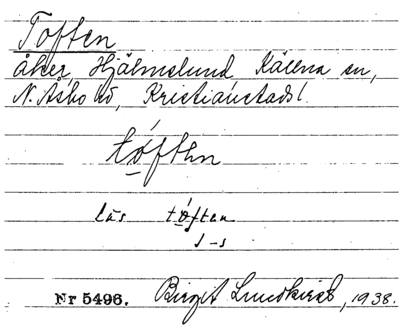 Toften
åker, Hjälmslund, Källna sn,
N. Åsbo hd, Kristianstads l.
tóften
läs tóften
Nr 5496. Birgit Lundkvist, 1938.